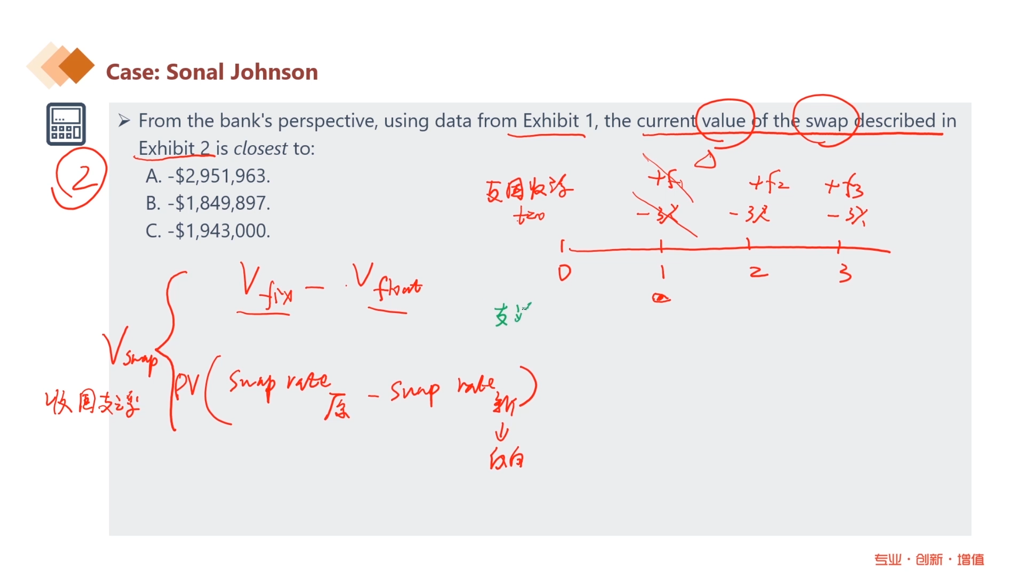 Case: Sonal Johnson
➢ From the bank's perspective, using data from Exhibit 1, the current value of the swap described in
Exhibit 2 is closest to:
A. -$2,951,963.
B. -$1,849,897.
C. -$1,943,000.
2
支固收浮
t=0
+f1 +f2 +f3
-3% -3% -3%
0 1 2 3
V fix - V float
支浮
V swap
收固支浮
PV( swap rate 原 - swap rate 新 )
↓
反向
专业·创新·增值